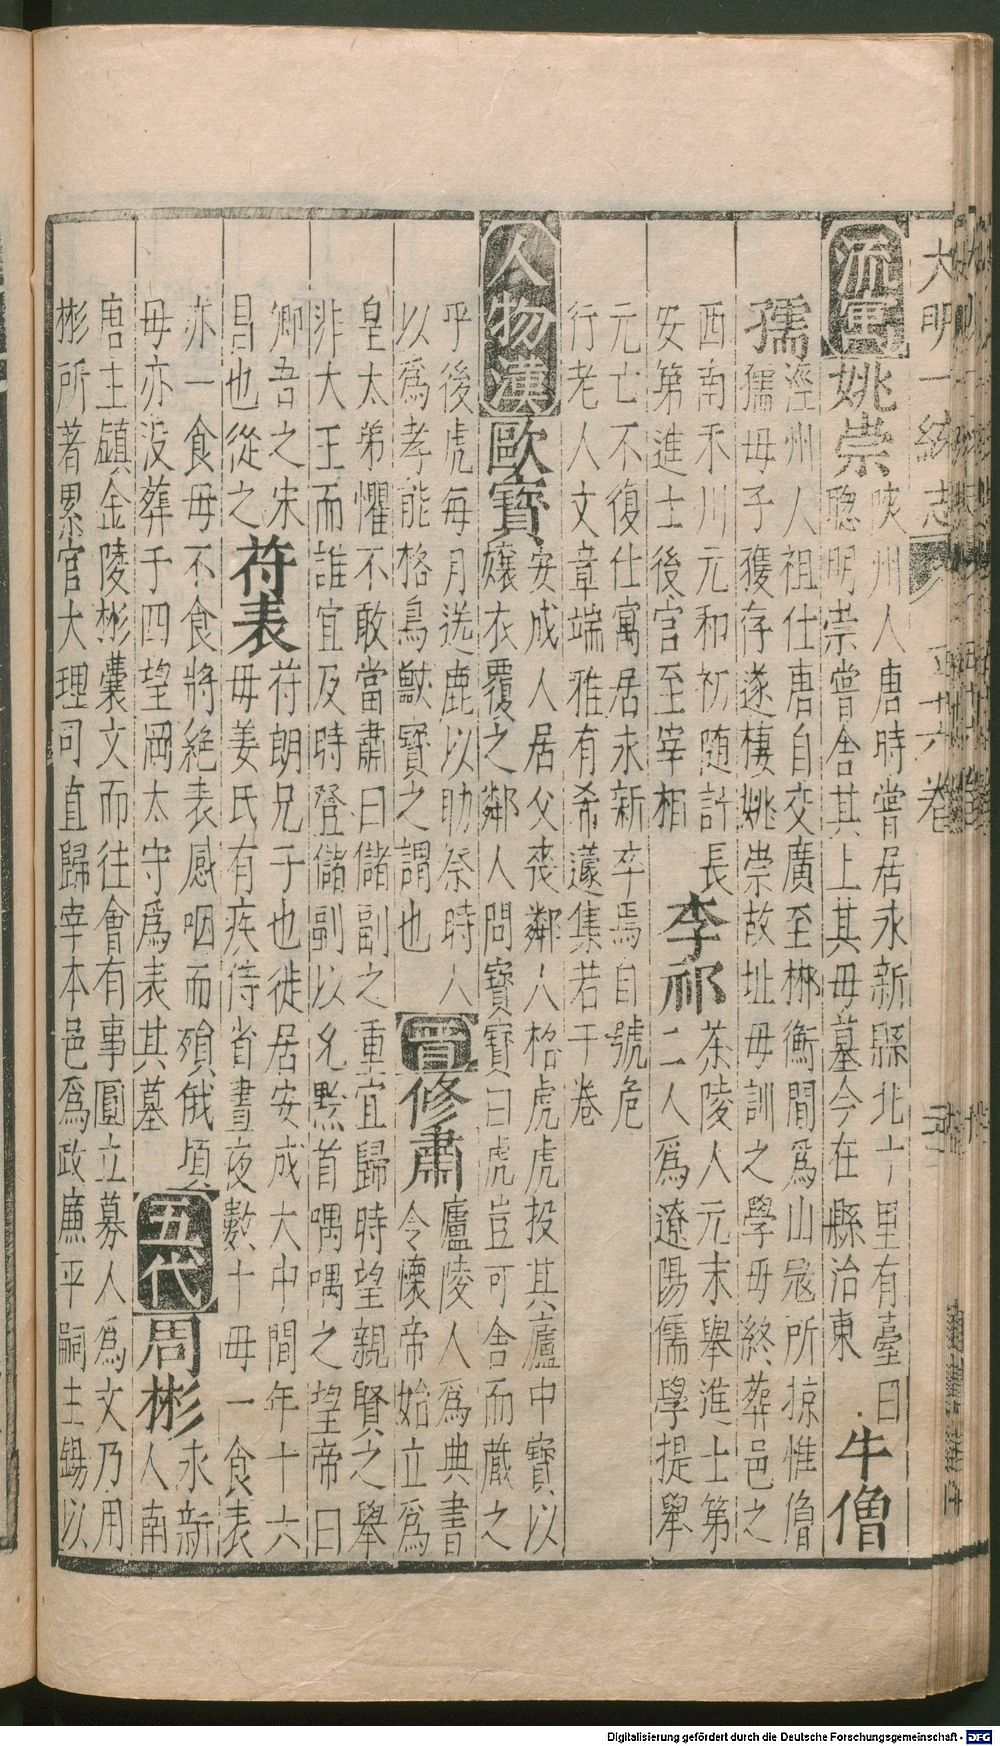 大明一統志 五十六卷
流寓姚崇陜州人唐時嘗居永新縣北六十里有臺曰
聰明崇嘗舍其上其母墓今在縣治東牛僧
孺涇州人祖仕唐自交廣至郴衡間爲山冦所掠惟僧
孺母子獲存遂棲姚崇故址母訓之學母終葬邑之
西南禾川元和初随計長
安第進士後官至宰相李祁茶陵人元末舉進士第
二人爲遼陽儒學提舉
元亡不復仕寓居永新卒焉自號危
行老人文章端雅有希蘧集若干卷
人物漢歐寶安成人居父喪鄰人格虎虎投其廬中寶以
孃衣覆之鄰人問寶寶曰虎豈可舎而蔵之
乎後虎每月送鹿以助祭時人
以爲孝能格鳥獸寳之謂也晋修肅廬陵人爲典書
令懷帝始立爲
皇太弟懼不敢當肅曰儲副之重宜歸時望親賢之舉
非大王而誰宜及時登儲副以允黔首喁喁之望帝曰
卿吾之宋
昌也從之苻表苻朗兄子也徙居安成大中間年十六
毋姜氏有疾侍省晝夜數十毋一食表
亦一食毋不食將絶表感咽而殞俄頃
毋亦没葬于四望岡太守爲表其墓五代周彬永新
人南
唐主鎮金陵彬囊文而往會有事圓立募人爲文乃用
彬所著累官大理司直歸宰本邑爲政廉平嗣主錫以
Digitalisierung gefördert durch die Deutsche Forschungsgemeinschaft - DFG